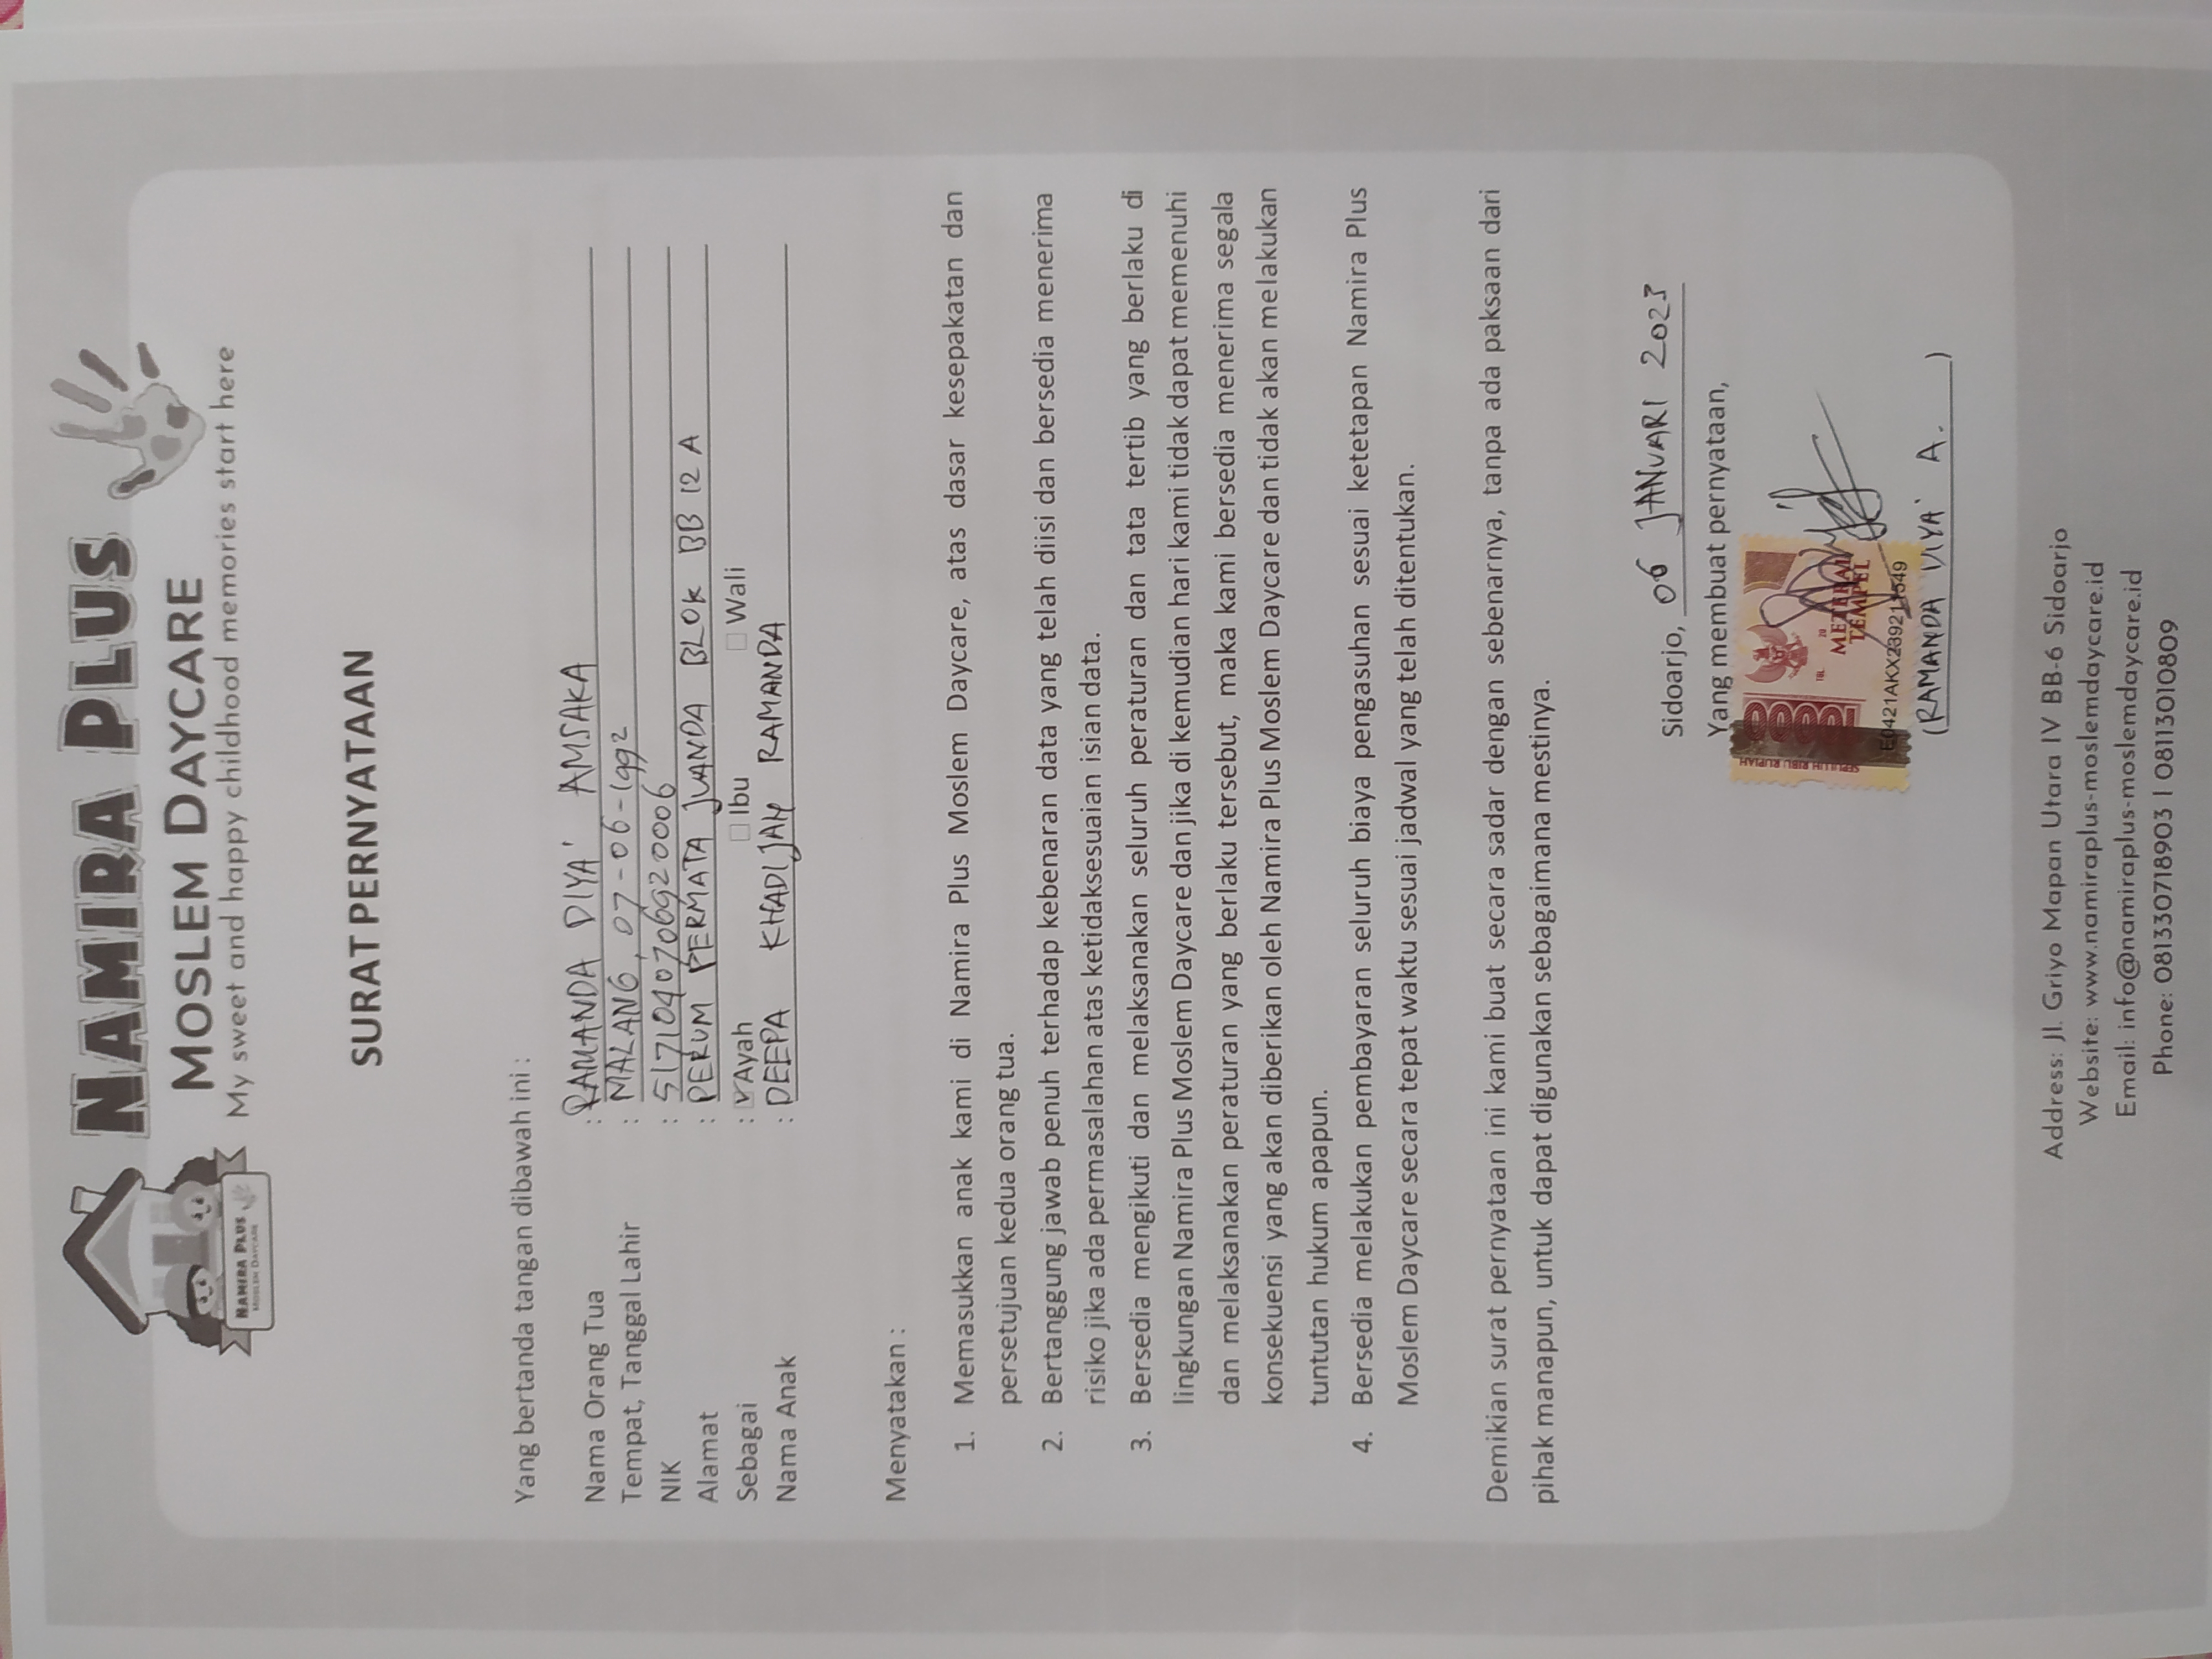 NAMIRA PLUS
MOSLEM DAYCARE
My sweet and happy childhood memories start here
NAMIRA PLUS
MOSLEM DAYCARE
SURAT PERNYATAAN
Yang bertanda tangan dibawah ini :
Nama Orang Tua : RAMANDA DIYA' AMSAKA
Tempat, Tanggal Lahir : MALANG, 07-06-1992
NIK : 5171040706920006
Alamat : PERUM PERMATA JUANDA BLOK BB 12 A
Sebagai : ☑ Ayah ☐ Ibu ☐ Wali
Nama Anak : DEEPA KHADIJAH RAMANDA
Menyatakan :
1. Memasukkan anak kami di Namira Plus Moslem Daycare, atas dasar kesepakatan dan
persetujuan kedua orang tua.
2. Bertanggung jawab penuh terhadap kebenaran data yang telah diisi dan bersedia menerima
risiko jika ada permasalahan atas ketidaksesuaian isian data.
3. Bersedia mengikuti dan melaksanakan seluruh peraturan dan tata tertib yang berlaku di
lingkungan Namira Plus Moslem Daycare dan jika di kemudian hari kami tidak dapat memenuhi
dan melaksanakan peraturan yang berlaku tersebut, maka kami bersedia menerima segala
konsekuensi yang akan diberikan oleh Namira Plus Moslem Daycare dan tidak akan melakukan
tuntutan hukum apapun.
4. Bersedia melakukan pembayaran seluruh biaya pengasuhan sesuai ketetapan Namira Plus
Moslem Daycare secara tepat waktu sesuai jadwal yang telah ditentukan.
Demikian surat pernyataan ini kami buat secara sadar dengan sebenarnya, tanpa ada paksaan dari
pihak manapun, untuk dapat digunakan sebagaimana mestinya.
Sidoarjo, 06 JANUARI 2023
Yang membuat pernyataan,
SEPULUH RIBU RUPIAH
10000
TGL. 20
METERAI
TEMPEL
E0421AKX239211549
(RAMANDA DIYA' A. )
Address: Jl. Griyo Mapan Utara IV BB-6 Sidoarjo
Website: www.namiraplus-moslemdaycare.id
Email: info@namiraplus-moslemdaycare.id
Phone: 081330718903 | 08113010809